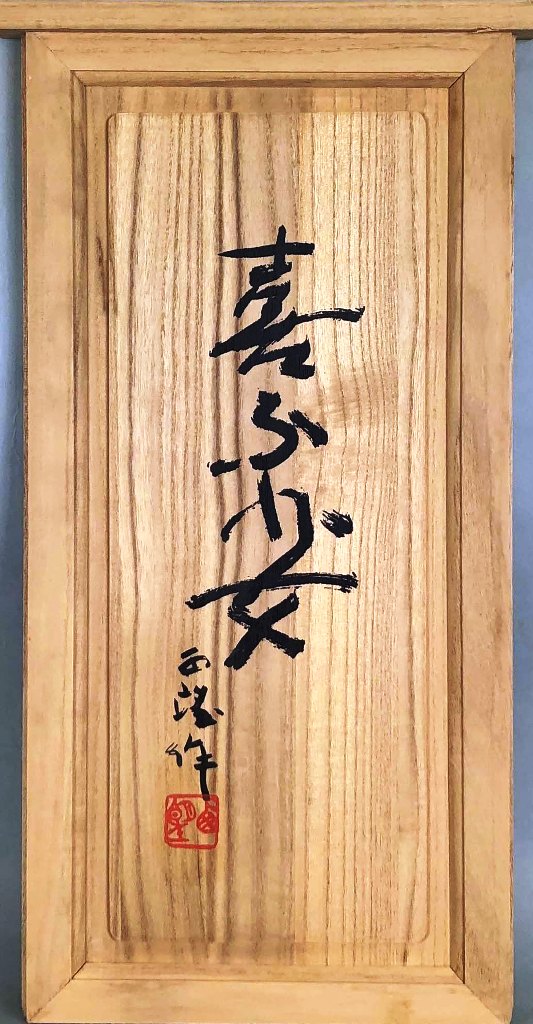 喜ぶ少女
西望作